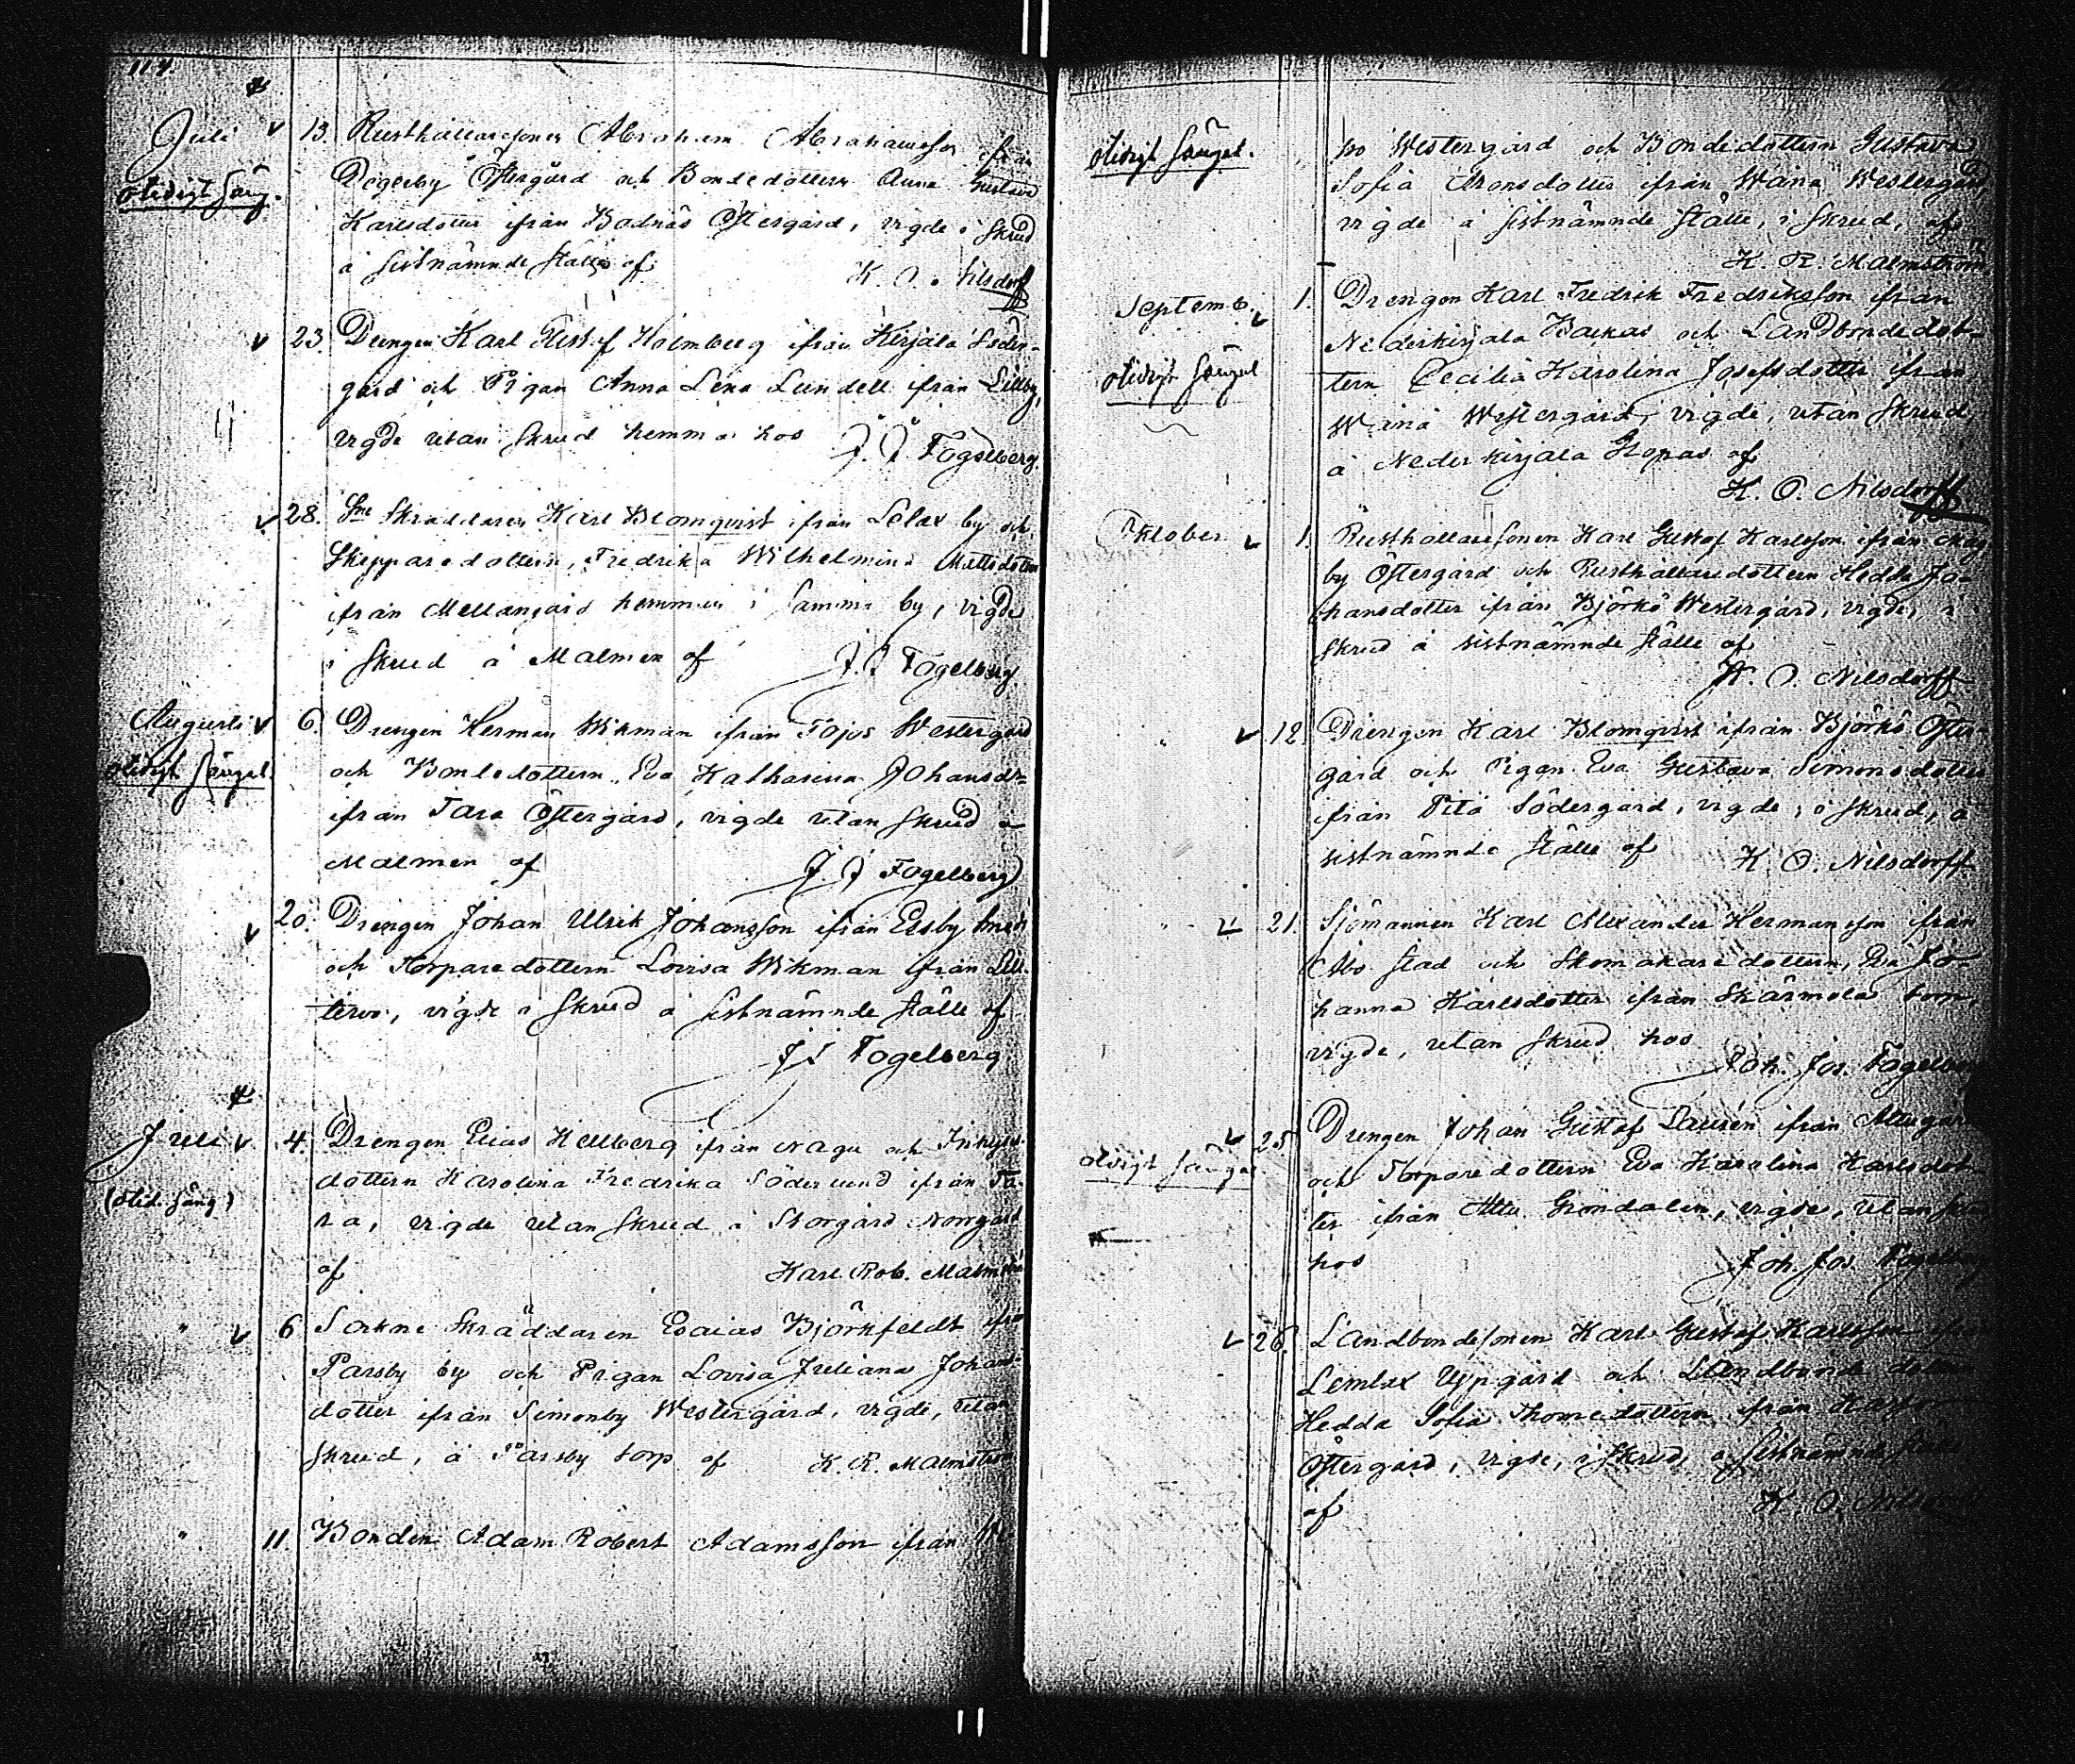 114.
Juli
otidigt säng.
13. Rusthållaresonen Abraham Abrahamsson ifrån
Östergård och Bondedottern Anna Gustava
Karlsdotter ifrån Bodnäs Östergård, vigde i skrud
å sistnämnde ställe af
K. O. Nilsdorff
23. Drengen Karl Gustaf Holmberg ifrån Kirjala Söder-
gård och Pigan Anna Lena Lundell ifrån Lillby,
vigde utan skrud hemma hos
J. J. Fogelberg.
28. Skräddaren Karl Blomqvist ifrån Lelax by och
Skepparedottern, Fredrika Wilhelmina Mattsdotter
ifrån Mellangård hemman i samma by, vigde
i skrud å Malmen af
J. J. Fogelberg.
Augusti
otidigt sängel.
6. Drengen Herman Wikman ifrån Westergård
och Bondedottern, Eva Katharina Johansdr
ifrån Tara Östergård, vigde utan skrud å
Malmen af
J. J. Fogelberg
20. Drengen Johan Ulrik Johansson ifrån
och Torparedottern Lovisa Wikman ifrån Lil-
tervo, vigde i skrud å sistnämnde ställe af
J J Fogelberg
Juli
(otid. säng)
4. Drengen Elias Hellberg ifrån Nagu och Inhyses-
dottern Karolina Fredrika Söderlund ifrån Ta-
ra, vigde utan skrud å Storgård Norrgård
af
Karl Rob. Malmström
" 6 Sockne Skräddaren Esaias Björkfeldt ifrån
Parsby by och Pigan Lovisa Juliana Johans-
dotter ifrån Simonby Westergård, vigde, utan
skrud, å Parsby torp af
K. R. Malmström
" 11. Bonden Adam Robert Adamsson ifrån
otidigt sängel.
bo Westergård och Bondedottern Gustava
Sofia Aronsdotter ifrån Wäinä Westergård,
vigde å sistnämnde ställe, i skrud, af
K. R. Malmström
Septemb.
otidigt sängel
1. Drengen Karl Fredrik Fredriksson ifrån
Nederkirjala Backas och Landbondedot-
tern Cecilia Karolina Josefsdotter ifrån
Wäinä Westergård, vigde, utan skrud,
å Nederkirjala af
K. O. Nilsdorff
Oktober
1. Rusthållaresonen Karl Gustaf Karlsson ifrån
by Östergård och Rusthållaredottern Hedda Jo-
hansdotter ifrån Björkö Westergård, vigde, i
skrud å sistnämnde ställe af
K. O. Nilsdorff
" 12 Drengen Karl Blomqvist ifrån Björkö Öster-
gård och Pigan Eva Gustava Simonsdotter
ifrån Södergård, vigde, i skrud, å
sistnämnde ställe af
K. O. Nilsdorff
" 21. Sjömannen Karl Alexander Hermansson ifrån
Åbo stad och Skomakaredottern, Eva Jo-
hanna Karlsdotter ifrån Skärmola torp,
vigde, utan skrud hos
Joh. Jos. Fogelberg
otidigt sängel
25 Drengen Johan Gustaf Laurén ifrån
och Torparedottern Eva Karolina Karlsdot-
ter ifrån Attu Gröndalen, vigde, utan skrud
hos
Joh. Jos. Fogelberg
26. Landbondesonen Karl Gustaf Karlsson ifrån
Lemlax Uppgård och Landbonde
Hedda Sofia Thomedottern ifrån
Östergård, vigde, i skrud, å sistnämnde ställe
af
K. O. Nilsdorff